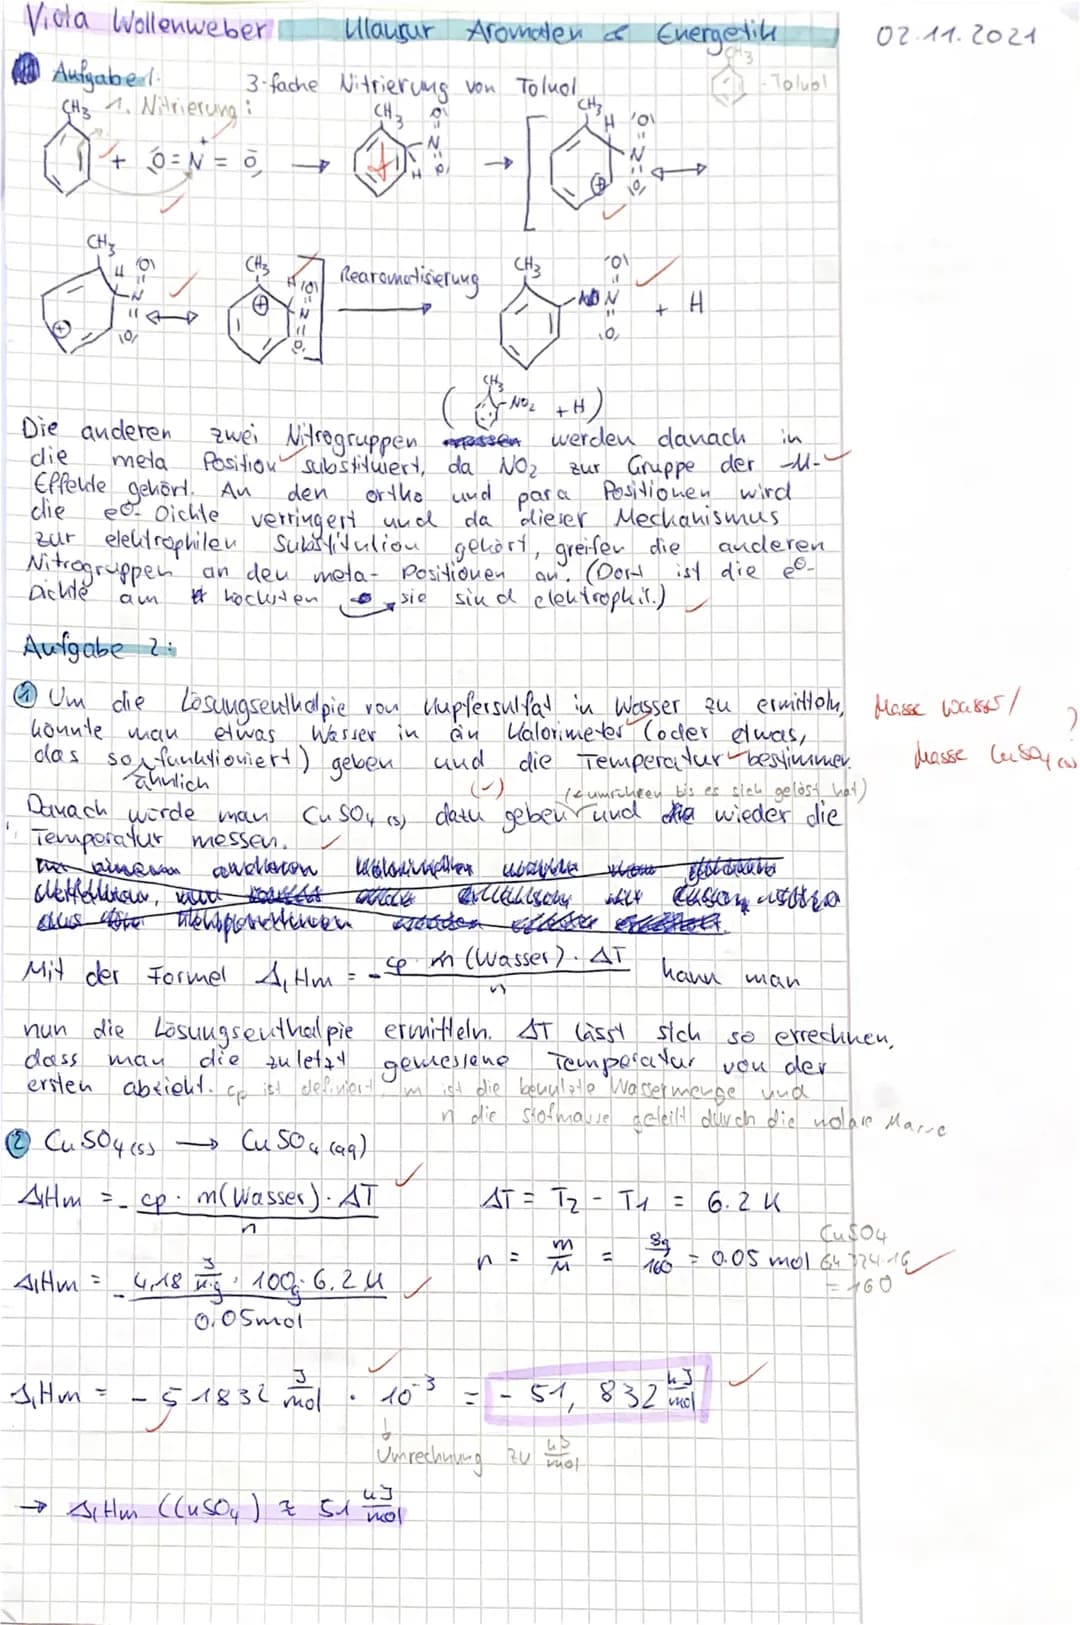 Viola Wollenweber Klausur Aromaten & Energetik 02.11.2021
Aufgabe 1. 3-fache Nitrierung von Toluol - Toluol
CH3 1. Nitrierung:
Rearomatisierung
CH3
+ H
( CH3 -NO2 + H )
Die anderen zwei Nitrogruppen werden danach in
die meta Position substituiert, da NO2 zur Gruppe der -M-
Effekte gehört. An den ortho und para Positionen wird
die e⊖- Dichte verringert und da dieser Mechanismus
zur elektrophilen Substitution gehört, greifen die anderen
Nitrogruppen an den meta- Positionen an. (Dort ist die e⊖-
Dichte am höchsten sie sind elektrophil.)
Aufgabe 2:
① Um die Lösungsenthalpie von Kupfersulfat in Wasser zu ermitteln, Masse Wasser/
könnte man etwas Wasser in ein Kalorimeter (oder etwas, ?
das so ähnlich funktioniert) geben und die Temperatur bestimmen. Masse CuSO4 (s)
(-) (& umrühren bis es sich gelöst hat)
Danach würde man CuSO4 (s) dazu geben und wieder die
Temperatur messen.
Mit der Formel ΔlHm = - cp · m (Wasser) · ΔT / n kann man
nun die Lösungsenthalpie ermitteln. ΔT lässt sich so errechnen,
dass man die zuletzt gemessene Temperatur von der
ersten abzieht. cp ist definiert m ist die benutzte Wassermenge und
n die Stofmasse geteilt durch die molare Masse
② CuSO4 (s) → CuSO4 (aq)
ΔlHm = - cp · m(Wasser) · ΔT / n ΔT = T2 - T1 = 6.2 K
n = m/M = 8g/160 = 0.05 mol CuSO4 64+32+4·16 = 160
ΔlHm = - 4,18 J/K·g · 100g · 6.2 K / 0.05mol
ΔlHm = - 51832 J/mol · 10^-3 = - 51, 832 kJ/mol
Umrechnung zu kJ/mol
→ ΔlHm (CuSO4) ≈ 51 kJ/mol